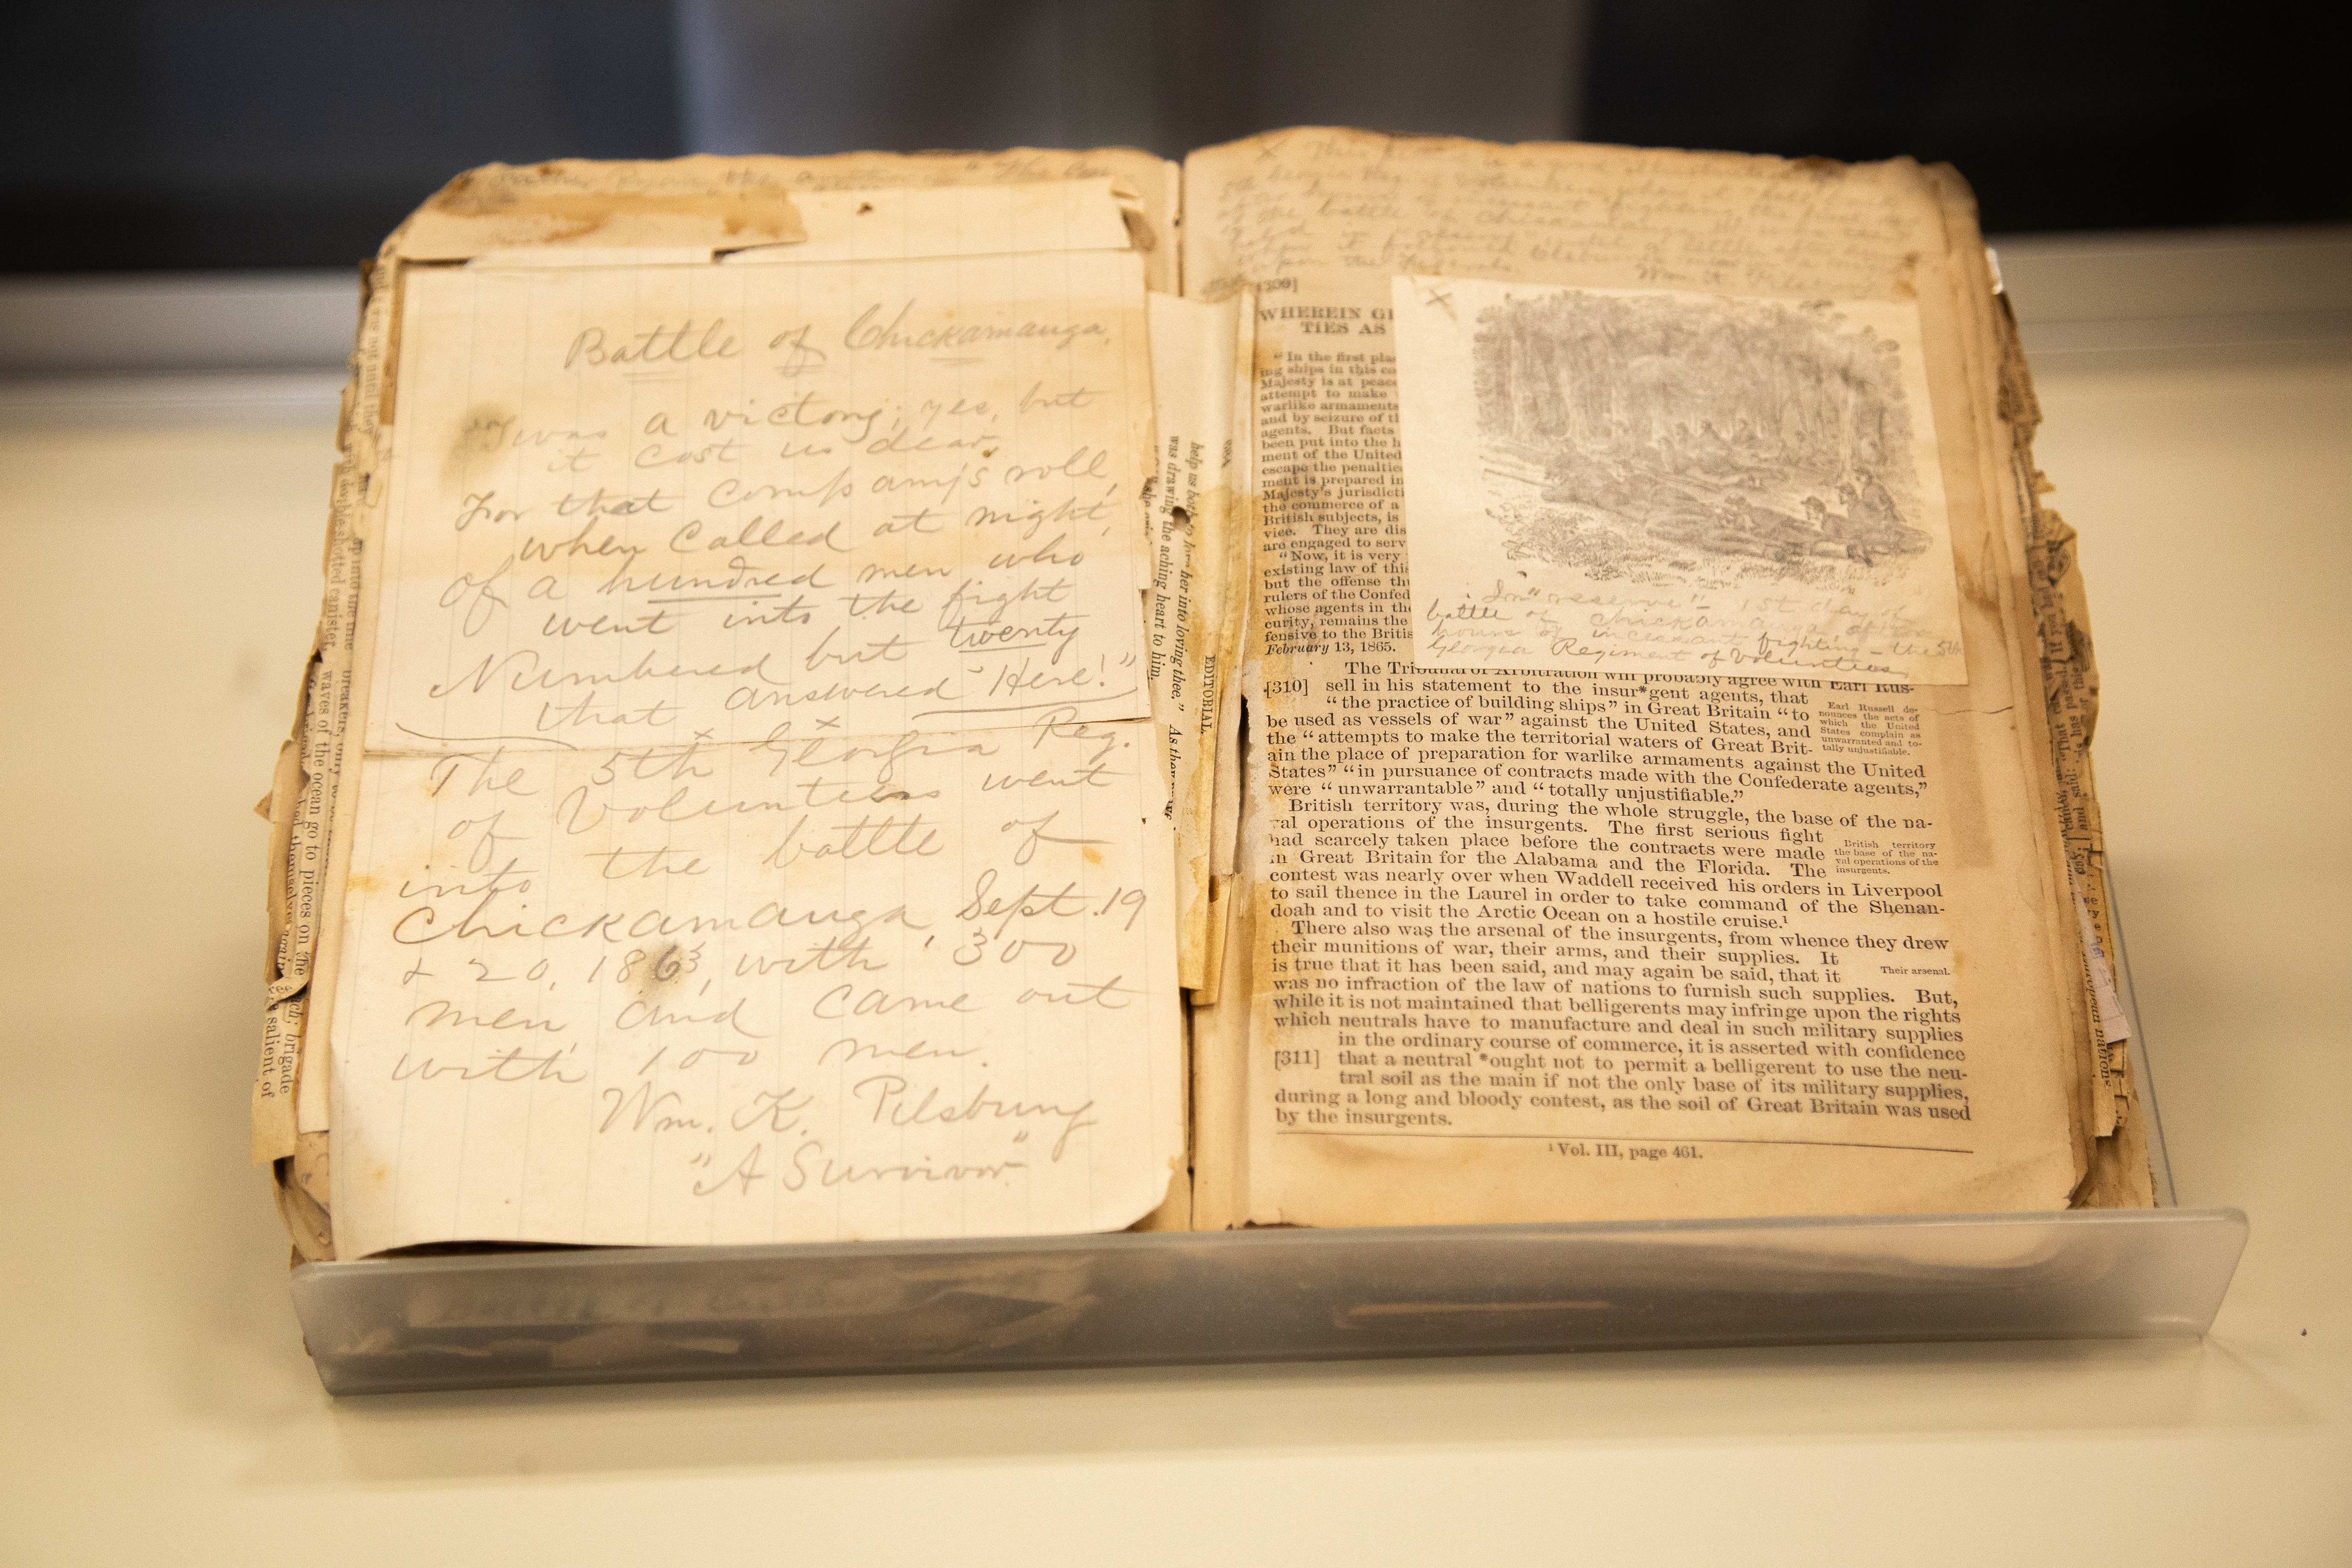 Battle of Chickamauga.
'Twas a victory; yes, but
it cost us dear,
For that company's roll,
when called at night,
Of a hundred men who
went into the fight
Numbered but twenty
that answered "Here!"
The 5th Georgia Reg.
of Volunteers went
into the battle of
Chickamauga, Sept. 19
+ 20, 1863, with 300
men and came out
with 100 men.
Wm. K. Pilsbury
"A Survivor"
help us both to her into loving thee." As
was drawing the aching heart to him.
EDITORIAL.
waves of the ocean go to pieces on the
brigade
salient of
of the battle of Chickamauga
upon the Federals.
Wm. K. Pilsbury
[309]
WHEREIN
TIES AS
"In the first
ing ships in this
Majesty is at peace
attempt to make
warlike armaments
and by seizure of
agents. But facts
been put into the
ment of the United
escape the
ment is prepared in
Majesty's
the commerce of a
British subjects, is
vice. They are
are engaged to
"Now, it is very
existing law of
but the offense
rulers of the
whose agents in the
curity, remains the
fensive to the
February 13, 1865.
x
In "reserve" - 1st day of
battle of Chickamauga after
hours of incessant fighting - the 5th
Georgia Regiment of Volunteers
The Tribunal of Arbitration will probably agree with Earl Rus-
[310] sell in his statement to the insur*gent agents, that
"the practice of building ships" in Great Britain "to
be used as vessels of war" against the United States, and
the "attempts to make the territorial waters of Great Brit-
ain the place of preparation for warlike armaments against the United
States" "in pursuance of contracts made with the Confederate agents,"
were "unwarrantable" and "totally unjustifiable."
Earl Russell de-
nounces the acts of
which the United
States complain as
unwarranted and to-
tally unjustifiable.
British territory was, during the whole struggle, the base of the na-
val operations of the insurgents. The first serious fight
had scarcely taken place before the contracts were made
in Great Britain for the Alabama and the Florida. The
contest was nearly over when Waddell received his orders in Liverpool
to sail thence in the Laurel in order to take command of the Shenan-
doah and to visit the Arctic Ocean on a hostile cruise.¹
British territory
the base of the na-
val operations of the
insurgents.
There also was the arsenal of the insurgents, from whence they drew
their munitions of war, their arms, and their supplies. It
is true that it has been said, and may again be said, that it
was no infraction of the law of nations to furnish such supplies. But,
while it is not maintained that belligerents may infringe upon the rights
which neutrals have to manufacture and deal in such military supplies
in the ordinary course of commerce, it is asserted with confidence
[311] that a neutral *ought not to permit a belligerent to use the neu-
tral soil as the main if not the only base of its military supplies,
during a long and bloody contest, as the soil of Great Britain was used
by the insurgents.
Their arsenal.
¹ Vol. III, page 461.